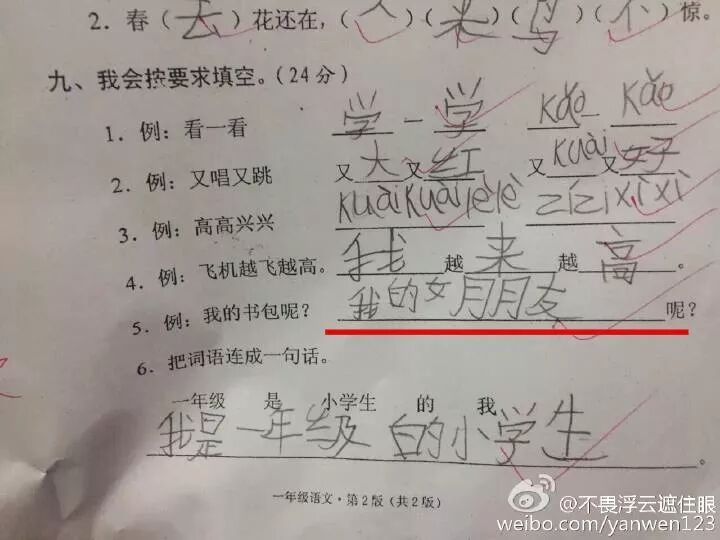 2. 春（去）花还在,（人）（来）（鸟）（不）惊。
九、我会按要求填空。(24分)
1. 例：看一看 学 - 学 kǎo - kǎo
2. 例：又唱又跳 又大又红 又kuài又好
3. 例：高高兴兴 kuàikuàilèlè zǐzǐxìxì
4. 例：飞机越飞越高。 我越来越高。
5. 例：我的书包呢？ 我的女朋友呢？
6. 把词语连成一句话。
一年级 是 小学生 的 我
我是一年级的小学生。
一年级语文·第2版（共2版）
@不畏浮云遮住眼
weibo.com/yanwen123